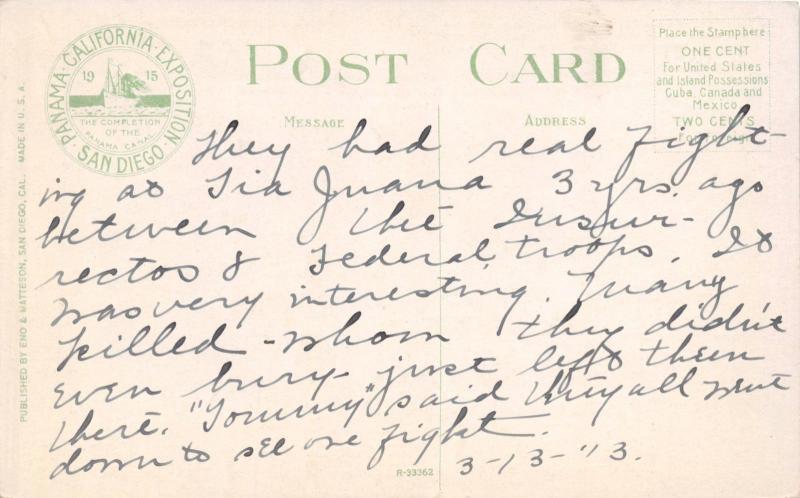 PANAMA-CALIFORNIA-EXPOSITION
1915
THE COMPLETION
OF THE
PANAMA CANAL
SAN DIEGO
POST CARD
MESSAGE
ADDRESS
Place the Stamp here
ONE CENT
For United States
and Island Possessions
Cuba, Canada and
Mexico
TWO CENTS
For
PUBLISHED BY ENO & MATTESON, SAN DIEGO, CAL. MADE IN U.S.A.
They had real fight-
ing at Tia Juana 3 yrs. ago
between the Insur-
rectos & Federal troops. It
was very interesting. Many
killed - whom they didn't
even bury - just left them
there. "Tommy" said they all went
down to see one fight.
3-13-'13.
R-33362